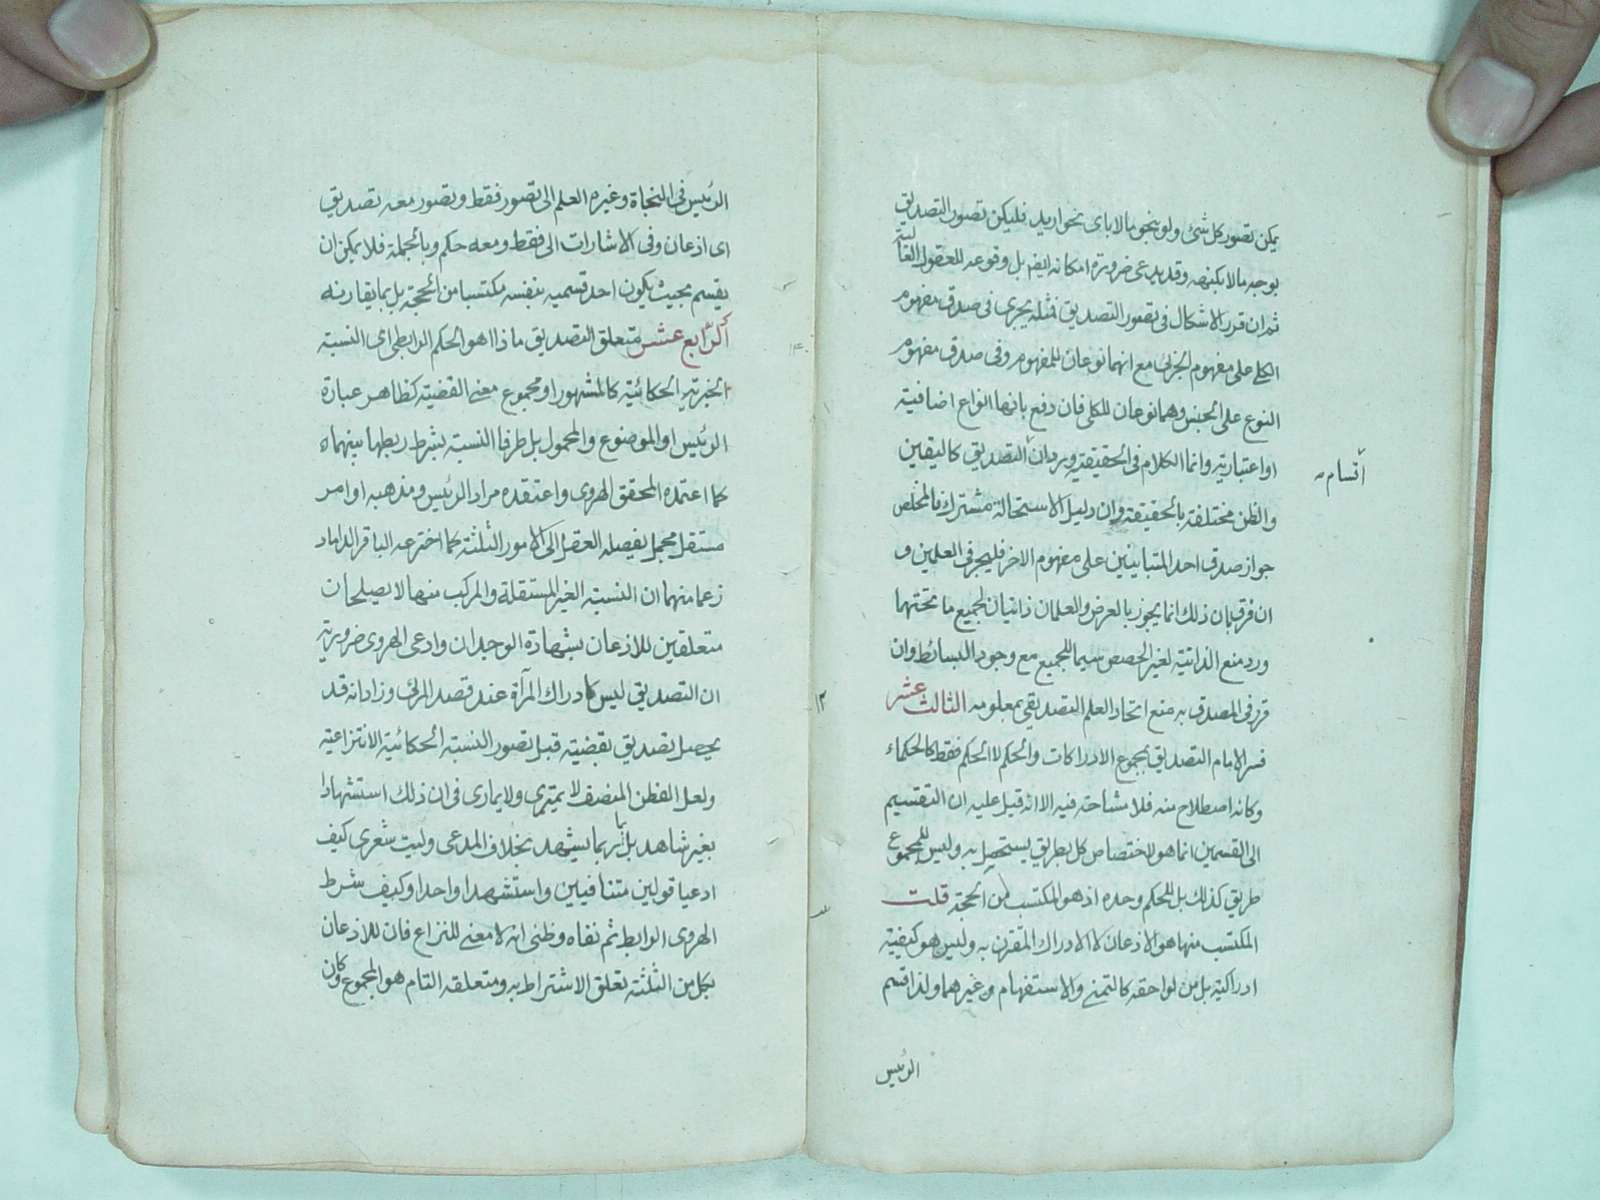 يمكن تصور كل شئ ولو بنحو ما لا باى نحو اريد فليكن تصور التصديق
بوجه ما لا بكنهه وقد يدعى ضرورة امكانه ايضا بل وقوعه للعقول العالية
ثم ان قرر الاشكال فى تصور التصديق فمثله يجرى فى صدق مفهوم
الكلى على مفهوم الجزئى مع انهما نوعان للمفهوم وفى صدق مفهوم
النوع على الجنس وهما نوعان للكلى فان دفع بانها انواع اضافية
او اعتبارية وانما الكلام فى الحقيقية ورد ان التصديق كاليقين
اقسام
والظن مختلفة بالحقيقة وان دليل الاستحالة مشترك فالمخلص
جواز صدق احد المتباينين على مفهوم الاخر فليجر فى العلمين و
ان فرق بان ذلك انما يجوز بالعرض والعلمان ذاتيان لجميع ما تحتهما
ورد منع الذاتية لغير الحصص سيما للجميع مع وجود البسائط وان
قرر فى المصدق به منع اتحاد العلم التصديقى بمعلومه الثالث عشر
فسر الامام التصديق بمجموع الادراكات والحكم لا الحكم فقط كالحكماء
وكانه اصطلاح منه فلا مشاحة فيه الا انه قيل عليه ان التقسيم
الى القسمين انما هو لاختصاص كل بطريق يستحصل به وليس للمجموع
طريق كذلك بل للحكم وحده اذ هو المكتسب من الحجة قلت
المكتسب منها هو الاذعان لا الادراك المقترن به وليس هو كيفية
ادراكية بل من لواحقه كالتمنى والاستفهام وغيرهما ولذا قسم
الرئيس
الرئيس فى النجاة وغيره العلم الى تصور فقط وتصور معه تصديق
اى اذعان وفى الاشارات الى فقط ومعه حكم وبالجملة فلا يمكن ان
يقسم بحيث يكون احد قسميه بنفسه مكتسبا من الحجة بل بما يقارنه
الرابع عشر متعلق التصديق ماذا اهو الحكم الرابطى اى النسبة
الخبرية الحكائية كالمشهور او مجموع معنى القضية كظاهر عبارة
الرئيس او الموضوع والمحمول بل طرفا النسبة بشرط ربطها بينهما
كما اعتمده المحقق الهروى واعتقده مراد الرئيس ومذهبه او امر
مستقل مجمل يفصله العقل الى الامور الثلثة كما اخترعه الباقر الداماد
زعما منهما ان النسبة الغير المستقلة والمركب منها لا يصلحان
متعلقين للاذعان بشهادة الوجدان وادعى الهروى ضرورية
ان التصديق ليس كادراك المرآة عند قصد المرئى وزاد انه قد
يحصل تصديق بقضية قبل تصور النسبة الحكائية الانتزاعية
ولعل الفطن المنصف لا يمترى ولا يمارى فى ان ذلك استشهادا
بغير شاهد بل ربما يشهد بخلاف المدعى وليت شعرى كيف
ادعيا قولين متنافيين واستشهدا واحدا وكيف شرط
الهروى الرابط ثم نفاه وظنى انه لا معنى للنزاع فان للاذعان
بكل من الثلثة تعلق الاشتراط به ومتعلقه التام هو المجموع وكان